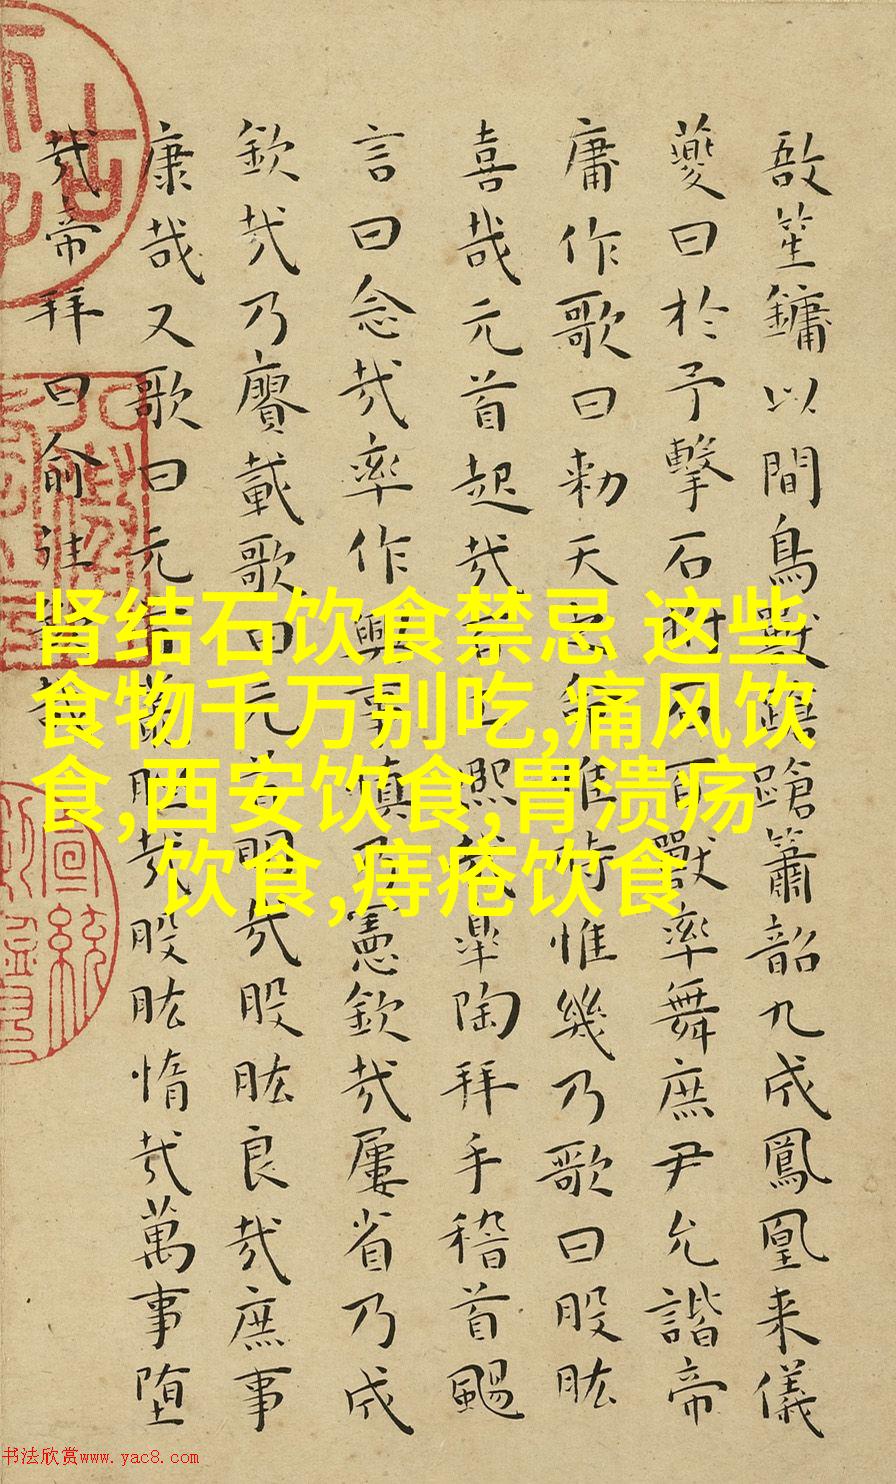 敔笙鏞以間鳥獸蹌蹌簫韶九成鳳凰来儀
夔曰於予擊石拊石百獸率舞庶尹允諧帝
庸作歌曰勑天之命惟時惟幾乃歌曰股肱
喜哉元首起哉百工熙哉皋陶拜手稽首颺
言曰念哉率作興事慎乃憲欽哉屢省乃成
欽哉乃賡載歌曰元首明哉股肱良哉庶事
康哉又歌曰元首叢脞哉股肱惰哉萬事堕
哉帝拜曰俞往欽哉
肾结石饮食禁忌 这些
食物千万别吃,痛风饮
食,西安饮食,胃溃疡
饮食,痔疮饮食
书法欣赏www.yac8.com